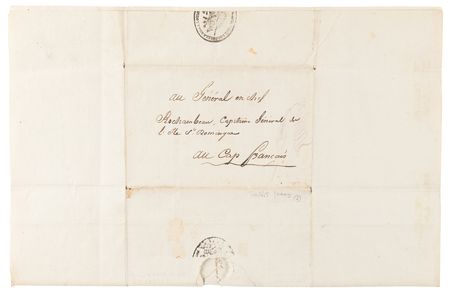 au Général en chef
Rochambeau, Capitaine General de
l'Ile St Domingue
au Cap français